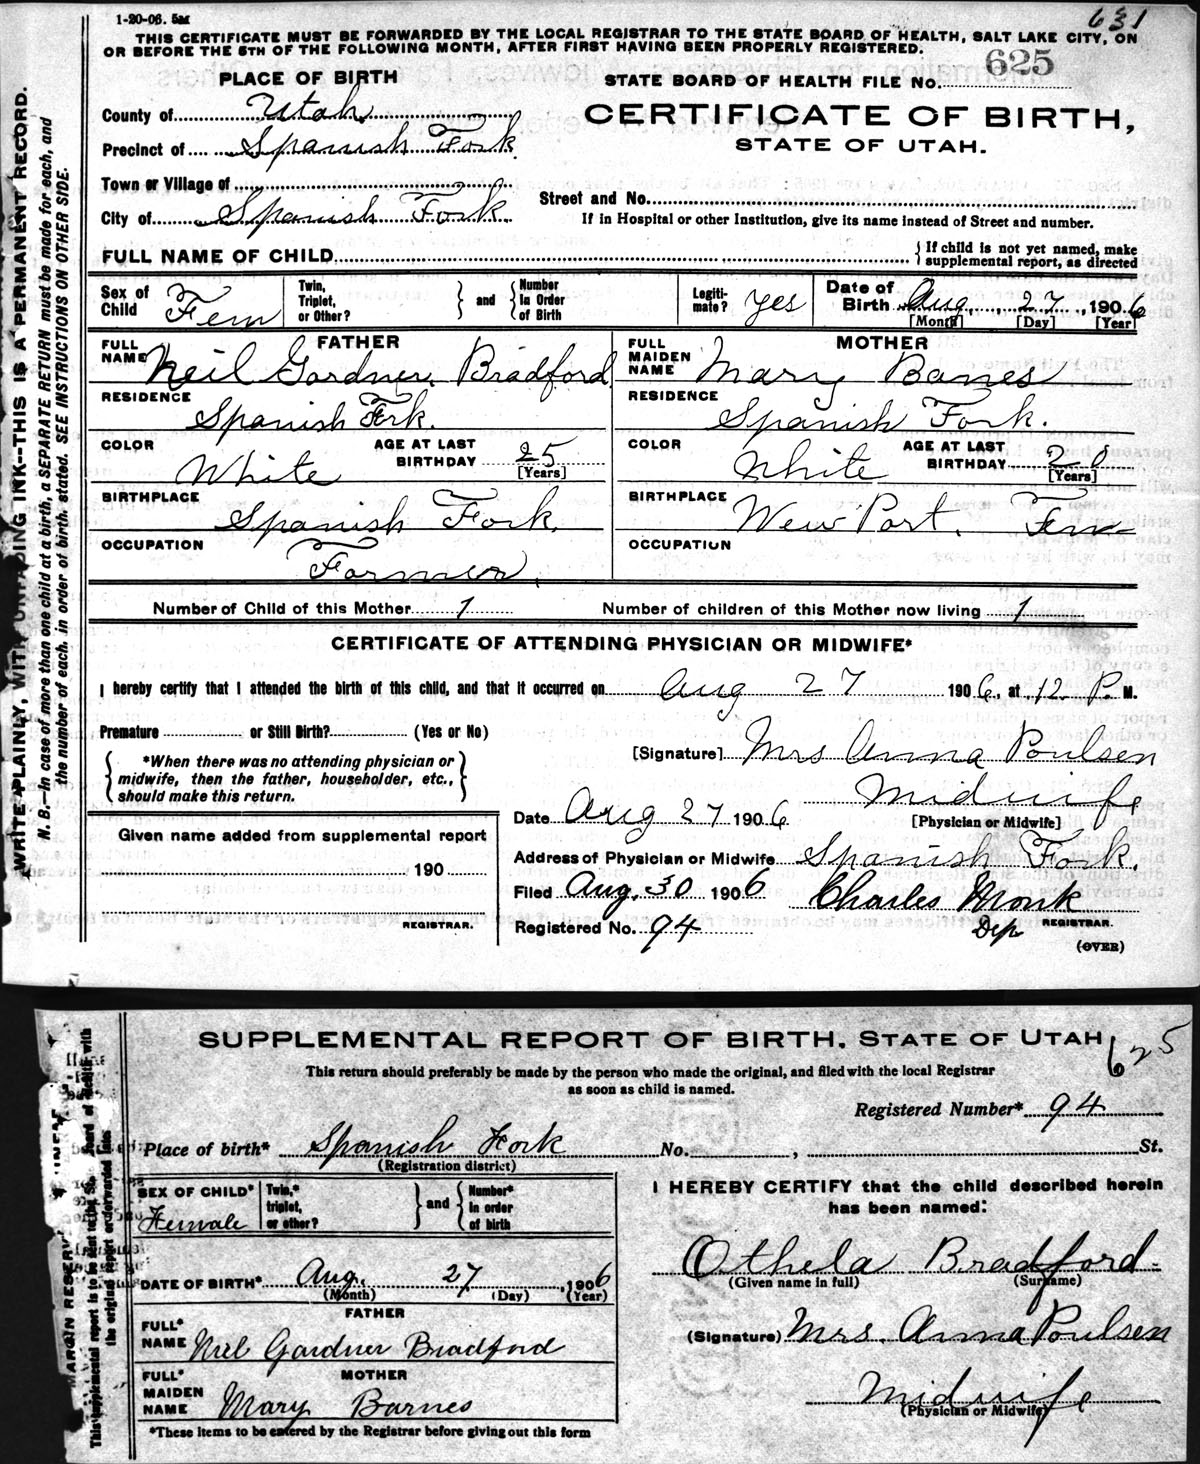 1-20-06. 5M
631
THIS CERTIFICATE MUST BE FORWARDED BY THE LOCAL REGISTRAR TO THE STATE BOARD OF HEALTH, SALT LAKE CITY, ON
OR BEFORE THE 5TH OF THE FOLLOWING MONTH, AFTER FIRST HAVING BEEN PROPERLY REGISTERED.
PLACE OF BIRTH
STATE BOARD OF HEALTH FILE No. 625
County of Utah
CERTIFICATE OF BIRTH,
Precinct of Spanish Fork
STATE OF UTAH.
Town or Village of
City of Spanish Fork
Street and No.
If in Hospital or other Institution, give its name instead of Street and number.
FULL NAME OF CHILD
If child is not yet named, make
supplemental report, as directed
Sex of Child Fem
Twin, Triplet, or Other?
and
Number In Order of Birth
Legiti-mate? Yes
Date of Birth Aug. 27, 1906
[Month] [Day] [Year]
FATHER
FULL NAME Neil Gardner Bradford
RESIDENCE
Spanish Fork.
COLOR White
AGE AT LAST BIRTHDAY 25
[Years]
BIRTHPLACE
Spanish Fork.
OCCUPATION
Farmer.
MOTHER
FULL MAIDEN NAME Mary Banes
RESIDENCE
Spanish Fork.
COLOR White
AGE AT LAST BIRTHDAY
[Years]
BIRTHPLACE
New Port. Tenn
OCCUPATION
Number of Child of this Mother 1
Number of children of this Mother now living 1
CERTIFICATE OF ATTENDING PHYSICIAN OR MIDWIFE*
I hereby certify that I attended the birth of this child, and that it occurred on Aug 27 1906, at 12 P. M.
Premature or Still Birth? (Yes or No)
*When there was no attending physician or
midwife, then the father, householder, etc.,
should make this return.
[Signature] Mrs Anna Poulsen
Midwife
[Physician or Midwife]
Date Aug 27 1906
Given name added from supplemental report
190
REGISTRAR.
Address of Physician or Midwife Spanish Fork.
Filed Aug. 30 1906 Charles Monk
Registered No. 94 Dep REGISTRAR.
(OVER)
WRITE PLAINLY, WITH UNFADING INK--THIS IS A PERMANENT RECORD.
N. B.—In case of more than one child at a birth, a SEPARATE RETURN must be made for each, and
the number of each, in order of birth, stated. SEE INSTRUCTIONS ON OTHER SIDE.
SUPPLEMENTAL REPORT OF BIRTH, STATE OF UTAH
625
This return should preferably be made by the person who made the original, and filed with the local Registrar
as soon as child is named.
Registered Number* 94
Place of birth* Spanish Fork No. , St.
(Registration district)
SEX OF CHILD* Female
Twin,* triplet, or other?
and
Number* in order of birth
I HEREBY CERTIFY that the child described herein
has been named:
Othela Bradford
(Given name in full) (Surname)
DATE OF BIRTH* Aug. 27, 1906
(Month) (Day) (Year)
FATHER
FULL* NAME Neil Gardner Bradford
(Signature) Mrs. Anna Poulsen
MOTHER
FULL* MAIDEN NAME Mary Barnes
Midwife
(Physician or Midwife)
*These items to be entered by the Registrar before giving out this form
MARGIN RESERV
This supplemental report is to be sent to the State Board of Health with
the original report